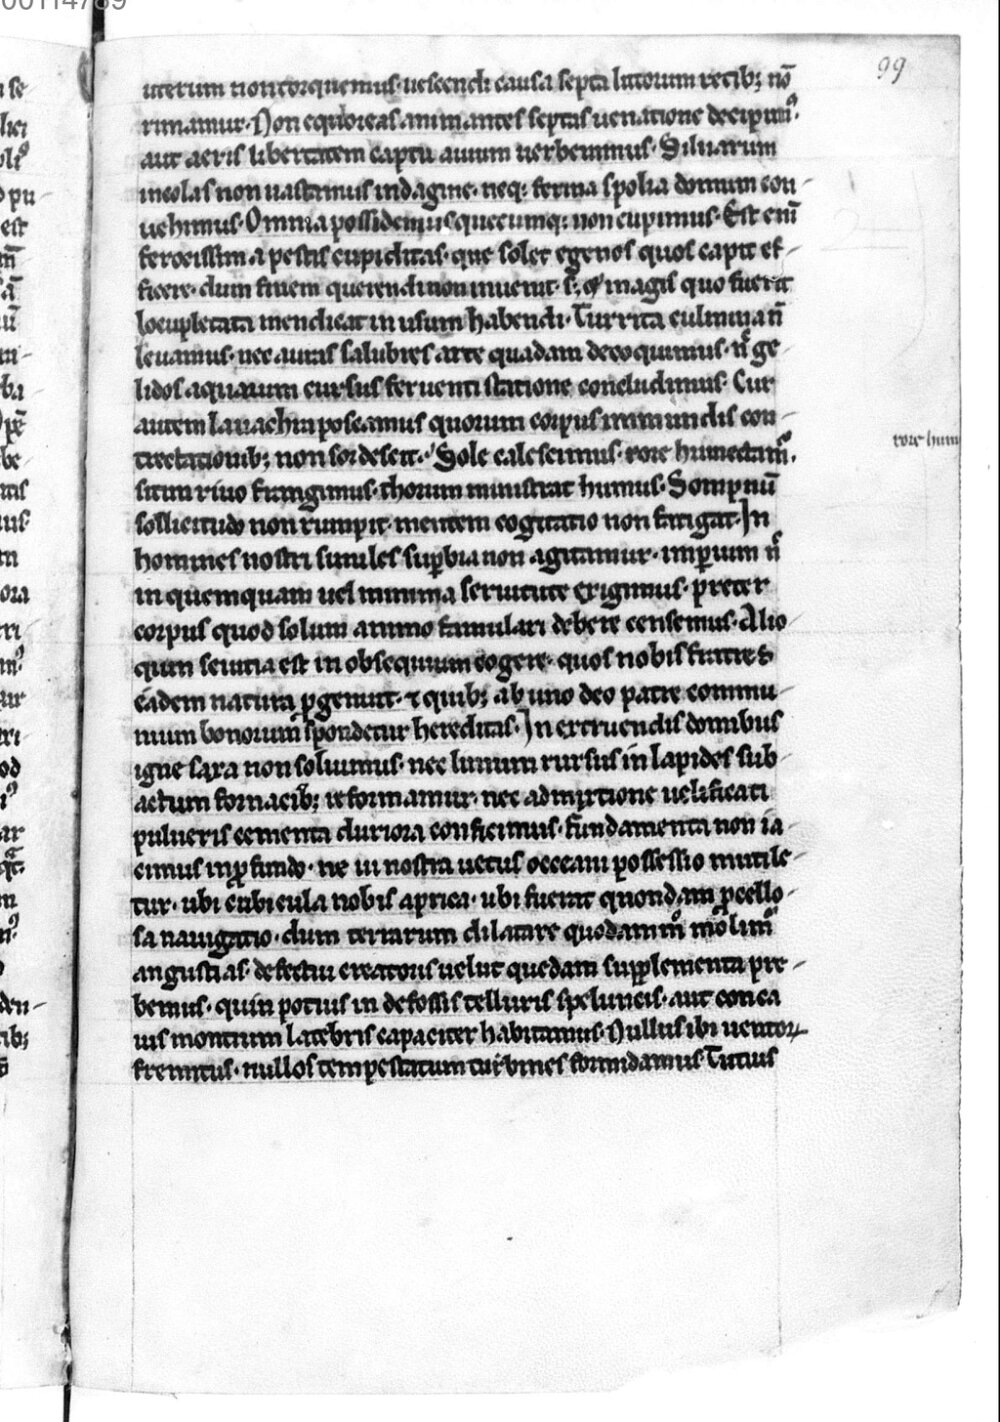 00114789
99
uterum non torquemus· uescendi causa septa littorum retib; nō
rimamur· Non equoreas animantes septas uenatione decipimꝰ·
aut aeris libertatem captu auium uerbeminus· Siluarum
incolas non uastamus indagine· neq; ferina spolia domum con-
uehimus· Omnia possidemus quecumq; non cupimus· Est eni̅
ferocissima pestis cupiditas· que solet egenos quos capit ef-
ficere· dum finem querendi non inuenit· s; magis quo fuerit
locupletata mendicat in usum habendi· Turrita culmina n̅
leuamus· nec auras salubres arte quadam decoquimus· n̅ ge-
lidos aquarum cursus feruenti statione concludimus· Cur
autem lauachra poscamus quorum corpus inmundis con-
trectationib; non sordescit· Sole calescimus· rore humectamꝰ·
rore hum
sitim riuo frangimus· thorum ministrat humus· Sompnū
sollicitudo non rumpit· mentem cogitatio non fatigat· In
homines nostri similes suꝑbia non agitamur· imꝑium n̅
in quemquam uel minima seruitute erigimus· preter
corpus quod solum animo famulari debere censemus· Alio
quin seuitia est in obsequium cogere· quos nobis fratres
eadem natura ꝓgenuit· ⁊ quib; ab uno deo patre commu-
nium bonorum spondetur hereditas· In extruendis domibus
igne saxa non soluimus· nec limum rursus in lapides sub-
actum fornacib; reformamur· nec admixtione uelificati
pulueris cementa duriora conficimus· fundamenta non ia-
cimus in ꝓfundo· ne ui nostra uetus occeani possessio mutile-
tur· ubi cubicula nobis aprica· ubi fuerat quondam ꝓcello-
sa nauigatio· dum terrarum dilatare quodam mͦ molimꝰ
angustias· defectui creatoris uelut quedam supplementa pre-
bemus· quin potius in defossis telluris speluncis· aut conca
uis montium latebris capaciter habitamus· Nullus ibi uentoꝝ
fremitus· nullos tempestatum turbines formidamus· Tutius